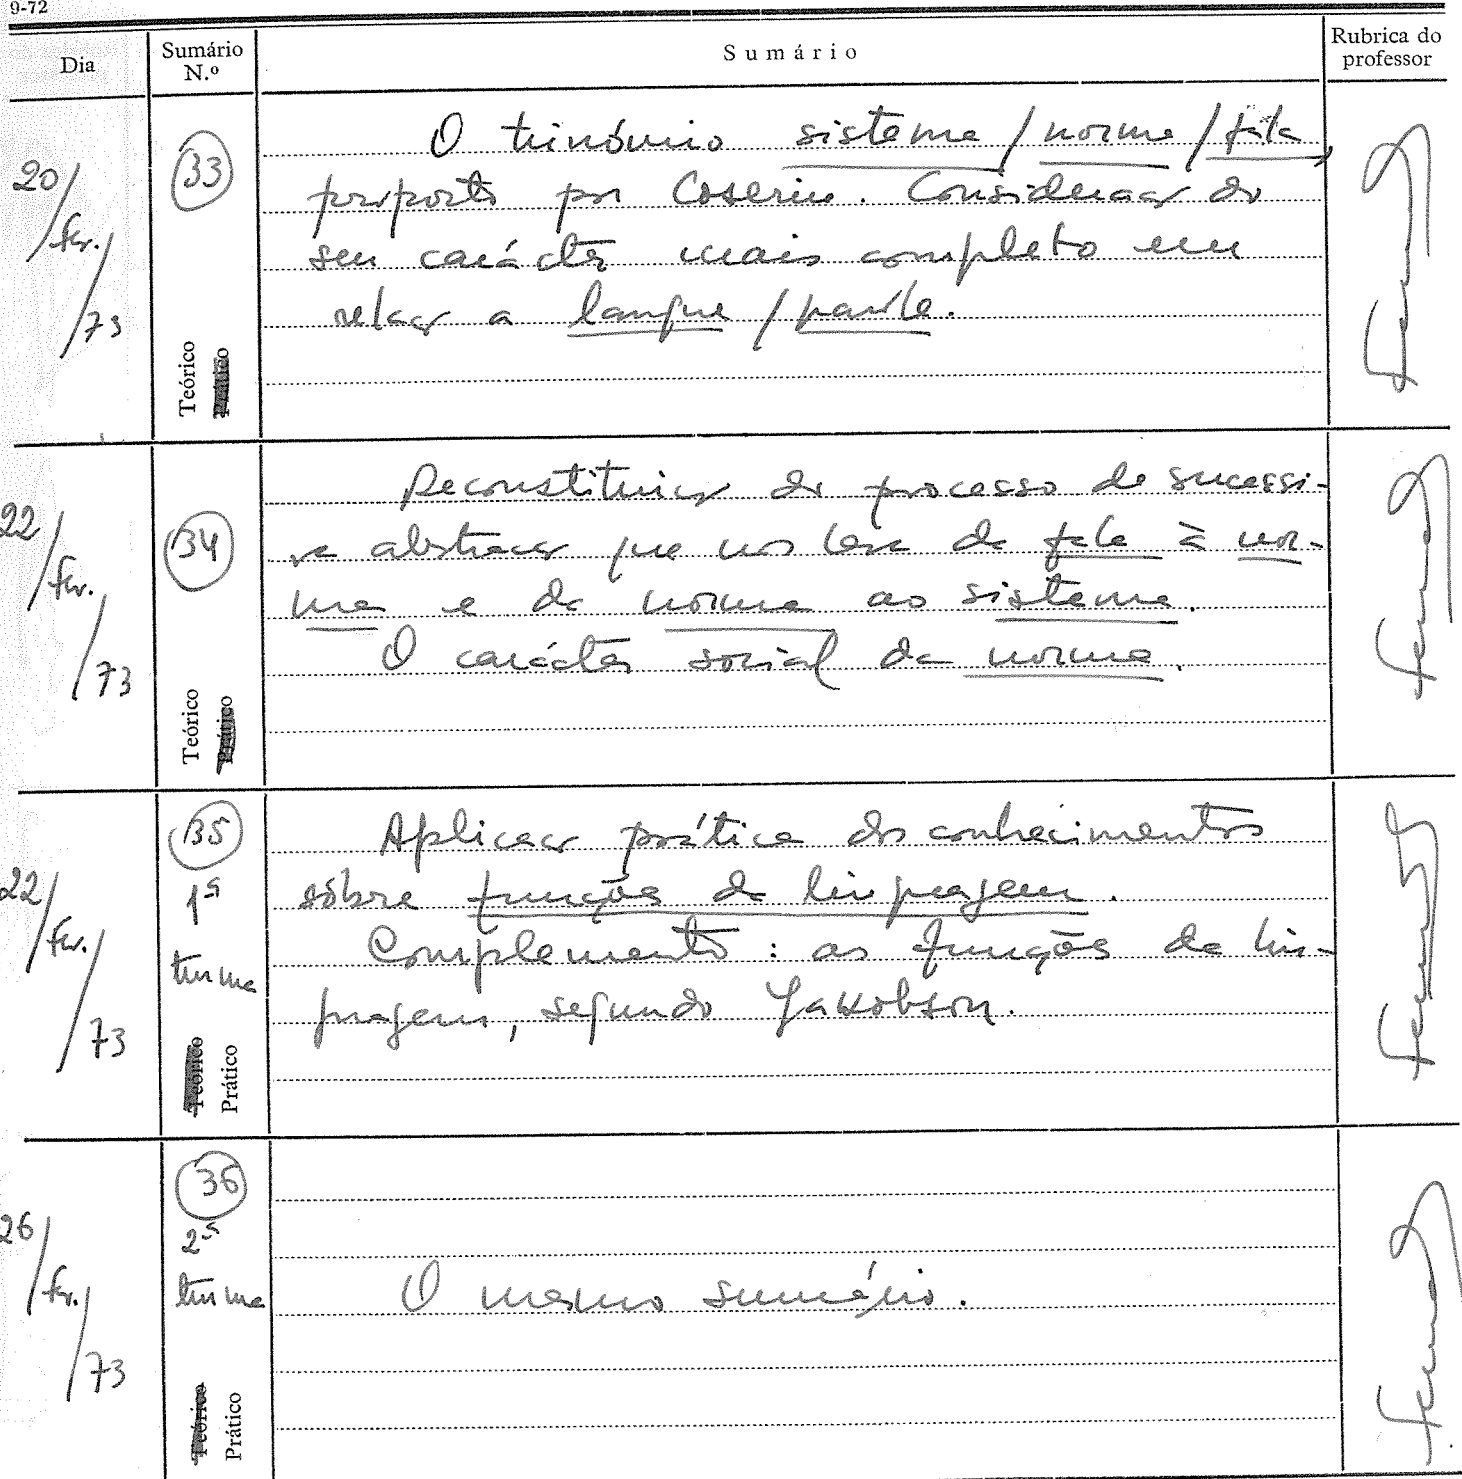 9-72
Dia
Sumário N.º
Sumário
Rubrica do professor
20/fev./73
33
Teórico
Prático
O trinómio sistema / norma / fala,
proposto por Coseriu. Consideração do
seu carácter mais completo em
relação a langue / parole.
22/fev./73
34
Teórico
Prático
Reconstituição do processo de sucessi-
va abstracção que nos leva da fala à nor-
ma e da norma ao sistema.
O carácter social da norma.
22/fev./73
35
1ª
turma
Teórico
Prático
Aplicação prática dos conhecimentos
sôbre funções da linguagem.
Complemento: as funções da lin-
guagem, segundo Jakobson.
26/fev./73
36
2ª
turma
Teórico
Prático
O mesmo sumário.